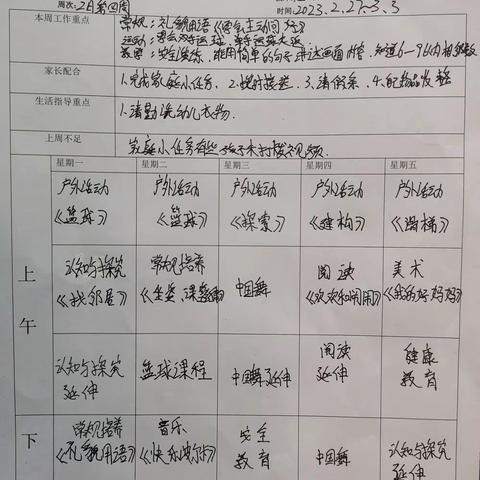 周次:2月第四周 时间:2023.2.27~3.3
本周工作重点
常规:礼貌用语《学会主动问好》
运动:
教学:安全演练,能用简单的句子表达画面内容,知道6-9以内相邻数
家长配合
1.完成家庭小任务. 2.按时接送. 3.请假条. 4.
生活指导重点
1.请勤洗幼儿衣物.
上周不足
家庭小任务有些孩子未打卡视频.
星期一 星期二 星期三 星期四 星期五
户外活动 户外活动 户外活动 户外活动 户外活动
《篮球》 《篮球》 《探索》 《建构》 《滑梯》
上午
认知与探究 常规培养 中国舞 阅读 美术
《找邻居》 《坐姿、课整理》 《欢欢和闹闹》 《我的好妈妈》
认知与探究 篮球课程 中国舞延伸 阅读 健康
延伸 延伸 教育
下
常规培养 音乐 安全 中国舞 认知与探究
《礼貌用语》 教育 延伸